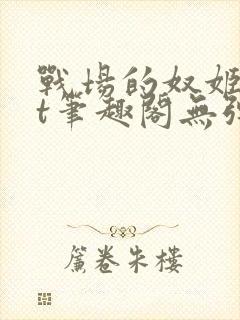 戰場的奴姬
t筆趣閣無彈
簾卷朱樓